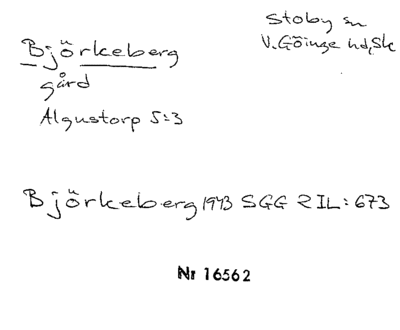 Stoby sn
V. Göinge hd, Sk
Björkeberg
gård
Algustorp 5:3
Björkeberg 1943 SGG 2 IL: 673
Nr 16562